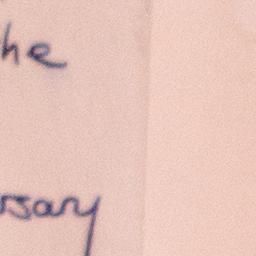 he
rsary